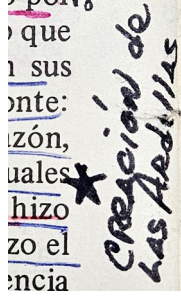 pon
o que
n sus
onte:
azón,
uales
hizo
zo el
encia
Creación de
Las Ardillas